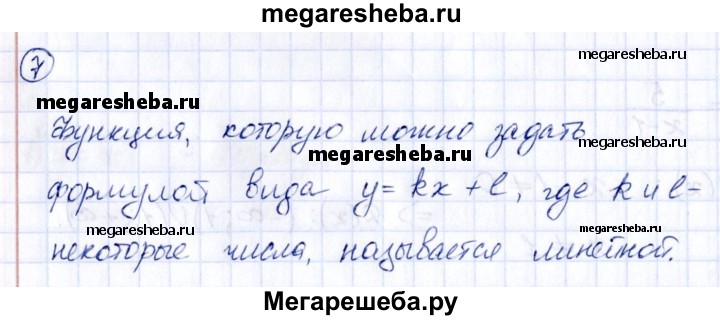 megaresheba.ru
7
megaresheba.ru
megaresheba.ru
Функция, которую можно задать
megaresheba.ru
формулой вида y = kx + l, где k и l -
megaresheba.ru
megaresheba.ru
некоторые числа, называется линейной.
Мегарешеба.ру